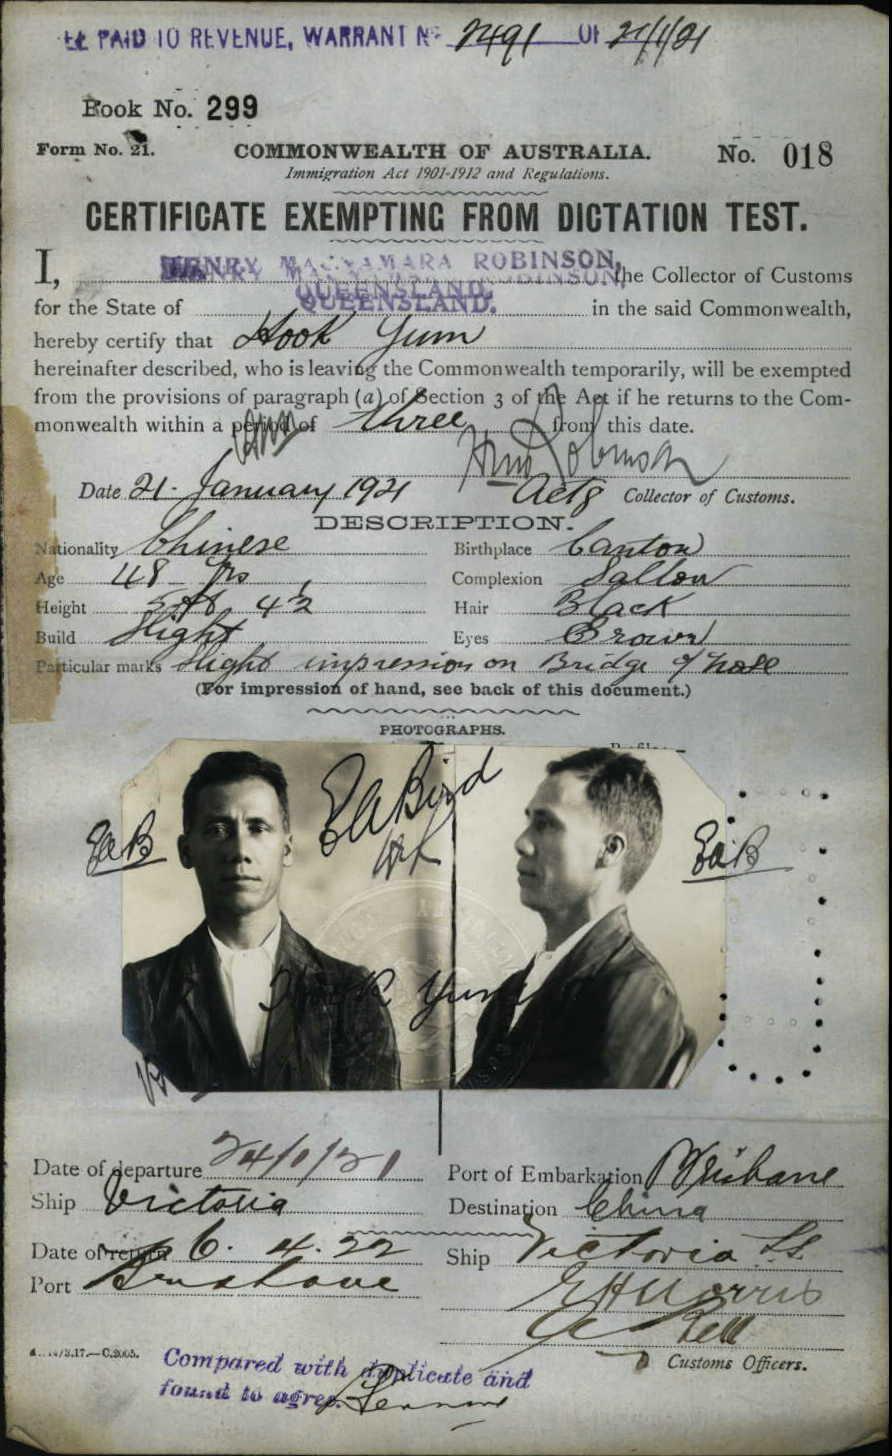 PAID TO REVENUE, WARRANT No 2491 OF 21/1/21
Book No. 299
Form No. 21.
COMMONWEALTH OF AUSTRALIA.
No. 018
Immigration Act 1901-1912 and Regulations.
CERTIFICATE EXEMPTING FROM DICTATION TEST.
I, HENRY MACNAMARA ROBINSON, the Collector of Customs
for the State of QUEENSLAND. in the said Commonwealth,
hereby certify that Hook Yum
hereinafter described, who is leaving the Commonwealth temporarily, will be exempted
from the provisions of paragraph (a) of Section 3 of the Act if he returns to the Com-
monwealth within a period of three from this date.
Date 21. January 1921 Actg Collector of Customs.
DESCRIPTION.
Nationality Chinese Birthplace Canton
Age 48 yrs Complexion Sallow
Height 5 ft 4½ Hair Black
Build Slight Eyes Brown
Particular marks Slight impression on Bridge of nose
(For impression of hand, see back of this document.)
PHOTOGRAPHS.
EaB EABird EaB
Hook Yum
Date of departure 24/1/21 Port of Embarkation Brisbane
Ship Victoria Destination China
Date of return 6. 4. 22 Ship Victoria SS
Port Brisbane
EH Morris
Bell
Customs Officers.
C.2005.
Compared with duplicate and
found to agree.